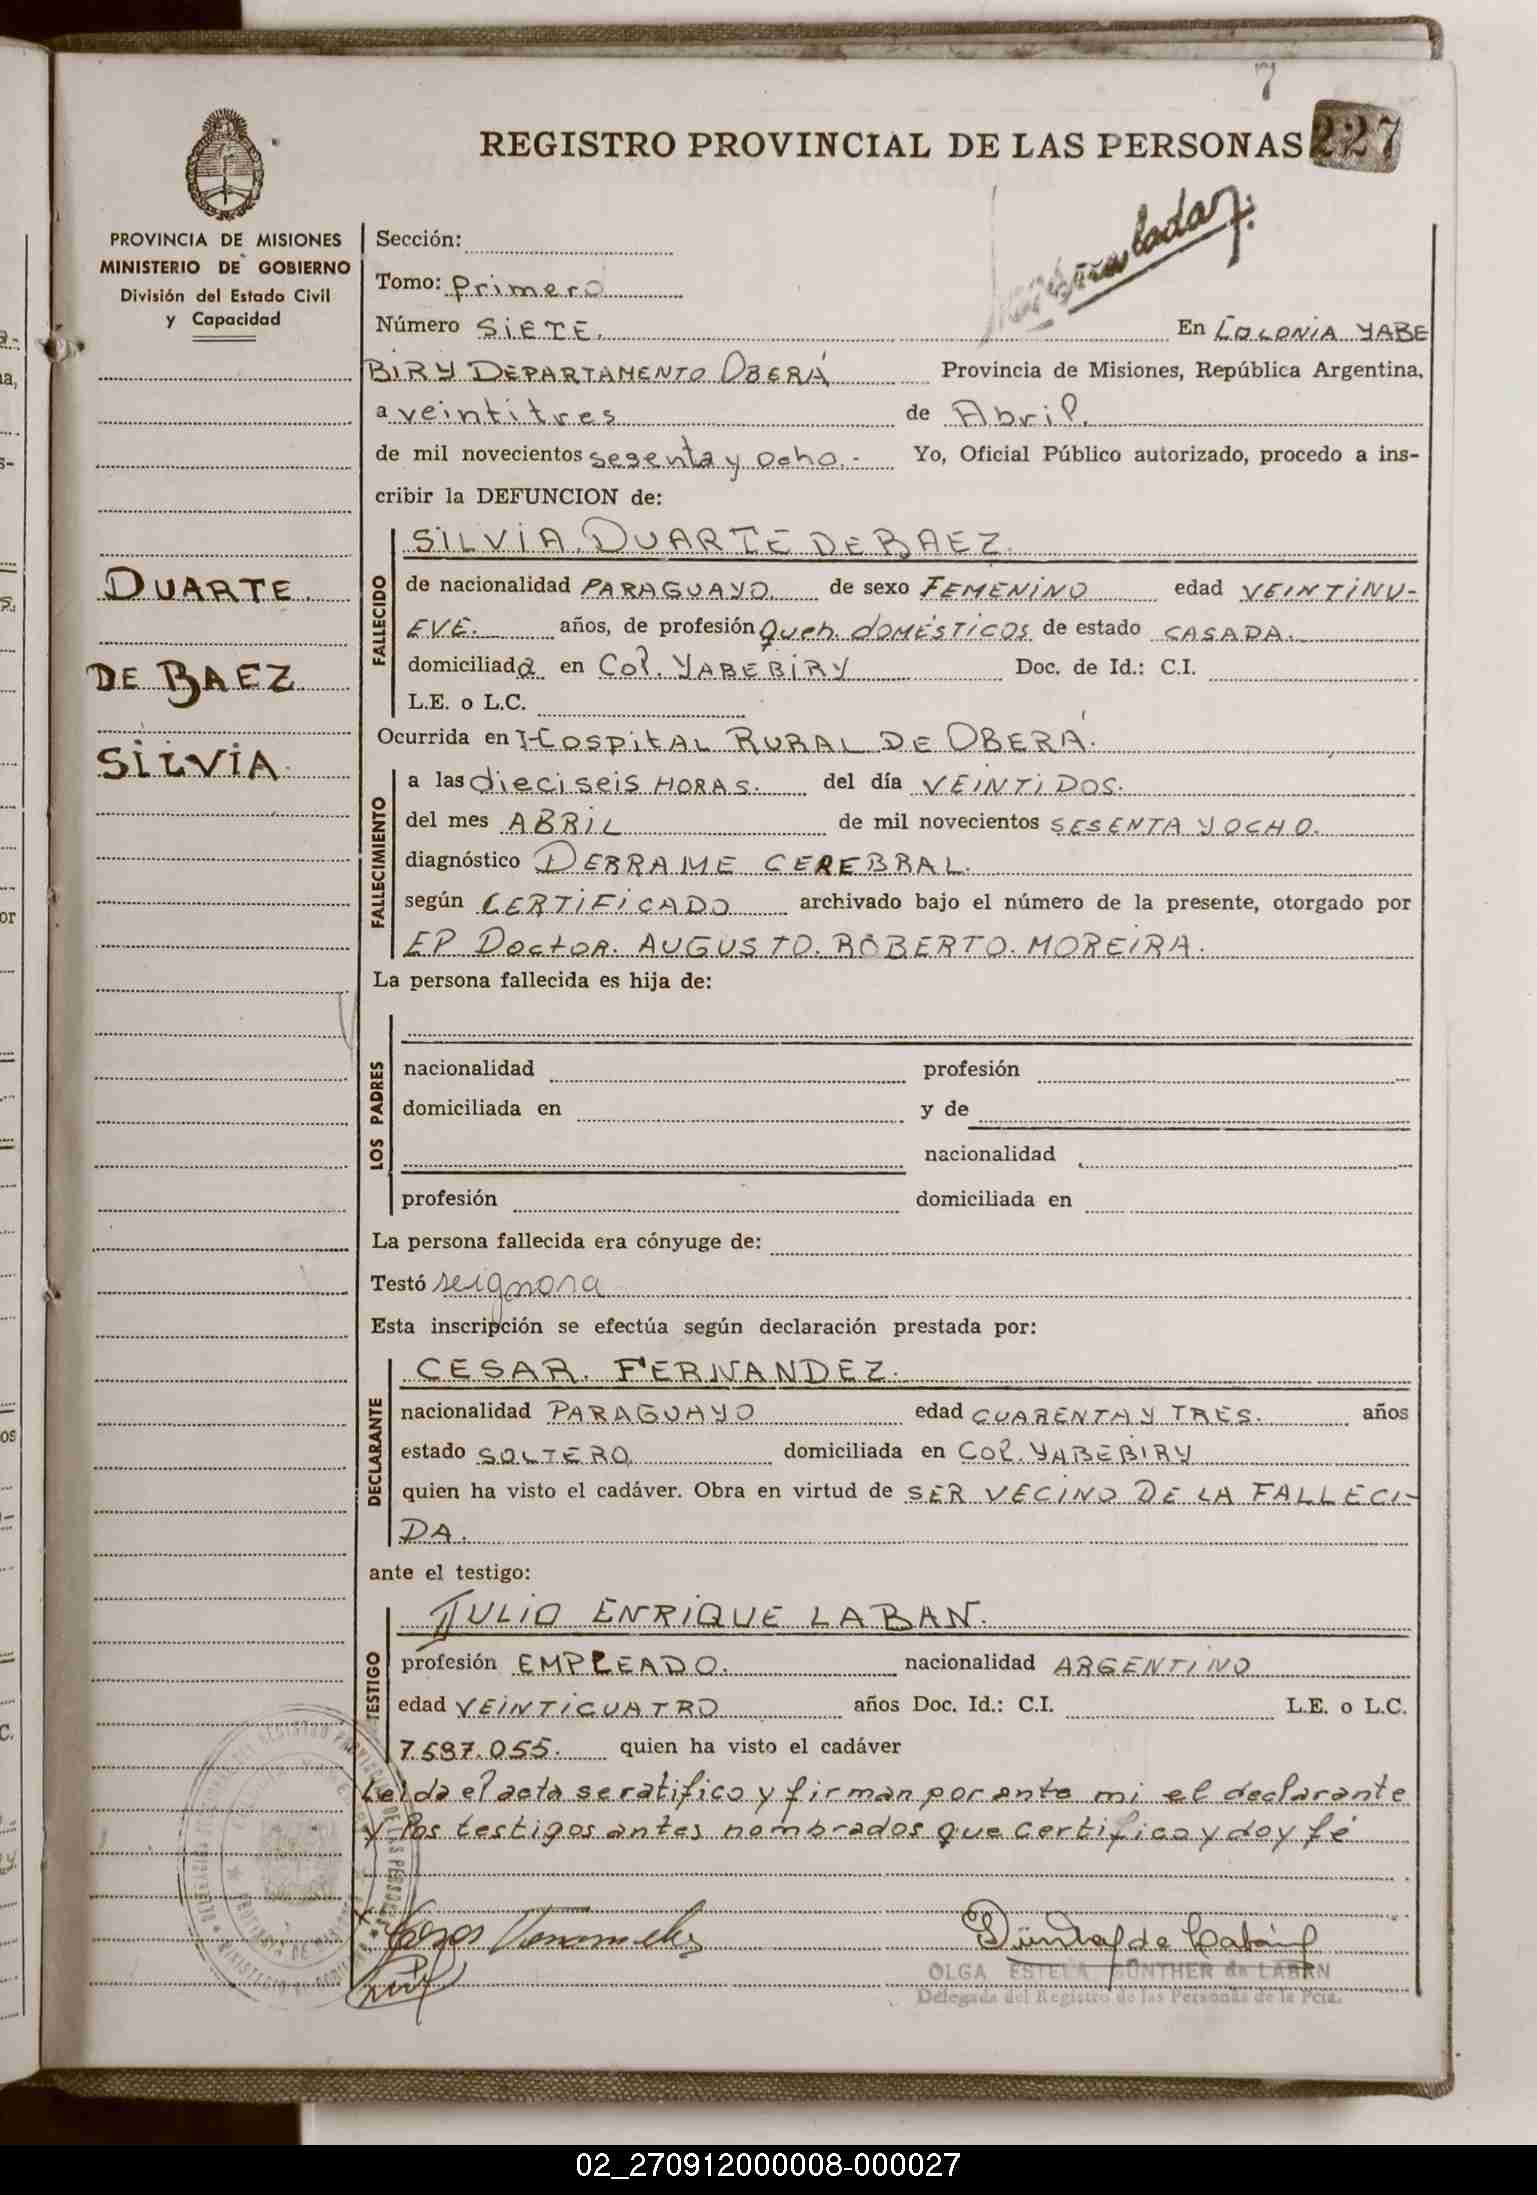 7
REGISTRO PROVINCIAL DE LAS PERSONAS 227
PROVINCIA DE MISIONES
MINISTERIO DE GOBIERNO
División del Estado Civil
y Capacidad
DUARTE
DE BAEZ
SILVIA
Sección:
Tomo: primero
Número SIETE. En COLONIA YABE
BIRY DEPARTAMENTO OBERÁ Provincia de Misiones, República Argentina,
a veintitres de Abril.
de mil novecientos sesenta y ocho.- Yo, Oficial Público autorizado, procedo a ins-
cribir la DEFUNCION de:
FALLECIDO
SILVIA. DUARTE DE BAEZ.
de nacionalidad PARAGUAYO. de sexo FEMENINO edad VEINTINU-
EVE. años, de profesión Queh. DOMÉSTICOS de estado CASADA.
domiciliada en Col. YABEBIRY Doc. de Id.: C.I.
L.E. o L.C.
Ocurrida en HOSPITAL RURAL DE OBERÁ.
FALLECIMIENTO
a las dieciseis HORAS. del día VEINTIDOS.
del mes ABRIL de mil novecientos SESENTA Y OCHO.
diagnóstico DERRAME CEREBRAL.
según CERTIFICADO archivado bajo el número de la presente, otorgado por
El Doctor. AUGUSTO. ROBERTO. MOREIRA.
La persona fallecida es hija de:
LOS PADRES
nacionalidad profesión
domiciliada en y de
nacionalidad
profesión domiciliada en
La persona fallecida era cónyuge de:
Testó seignora
Esta inscripción se efectúa según declaración prestada por:
DECLARANTE
CESAR. FERNANDEZ.
nacionalidad PARAGUAYO edad CUARENTA Y TRES. años
estado SOLTERO domiciliada en Col. YABEBIRY
quien ha visto el cadáver. Obra en virtud de SER VECINO DE LA FALLECI-
DA.
ante el testigo:
TESTIGO
JULIO ENRIQUE LABAN.
profesión EMPLEADO. nacionalidad ARGENTINO
edad VEINTICUATRO años Doc. Id.: C.I. L.E. o L.C.
7.587.055. quien ha visto el cadáver
Leida el acta se ratifico y firman por ante mi el declarante
y los testigos antes nombrados que certifico y doy fé
OLGA ESTELA GÜNTHER de LABAN
Delegada del Registro de las Personas de la Pcia.
02_270912000008-000027